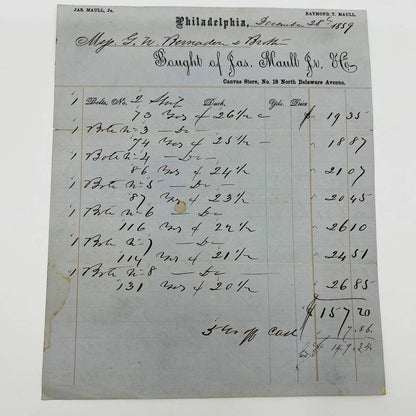 JAS. MAULL, Jr. RAYMOND T. MAULL.
Philadelphia, December 28th 1859
Mess G. W. Bernadou & Brother
Bought of Jas. Maull Jr. & Co
Canvas Store, No. 18 North Delaware Avenue.
1 Bolts, No. 2 Duck, Yds. Price
73 Yds @ 26 1/2 c $ 19 35
1 Bolt No 3 — Do —
74 Yds @ 25 1/2 — 18 87
1 Bolt No 4 — Do —
86 Yds @ 24 1/2 21 07
1 Bolt No 5 — Do —
87 Yds @ 23 1/2 20 45
1 Bolt No 6 Do —
116 Yds @ 22 1/2 26 10
1 Bolt No 7 — Do —
114 Yds @ 21 1/2 24 51
1 Bolt No 8 — Do —
131 Yds @ 20 1/2 26 85
$ 157 20
5 % off Cash 7.86
$ 149.34